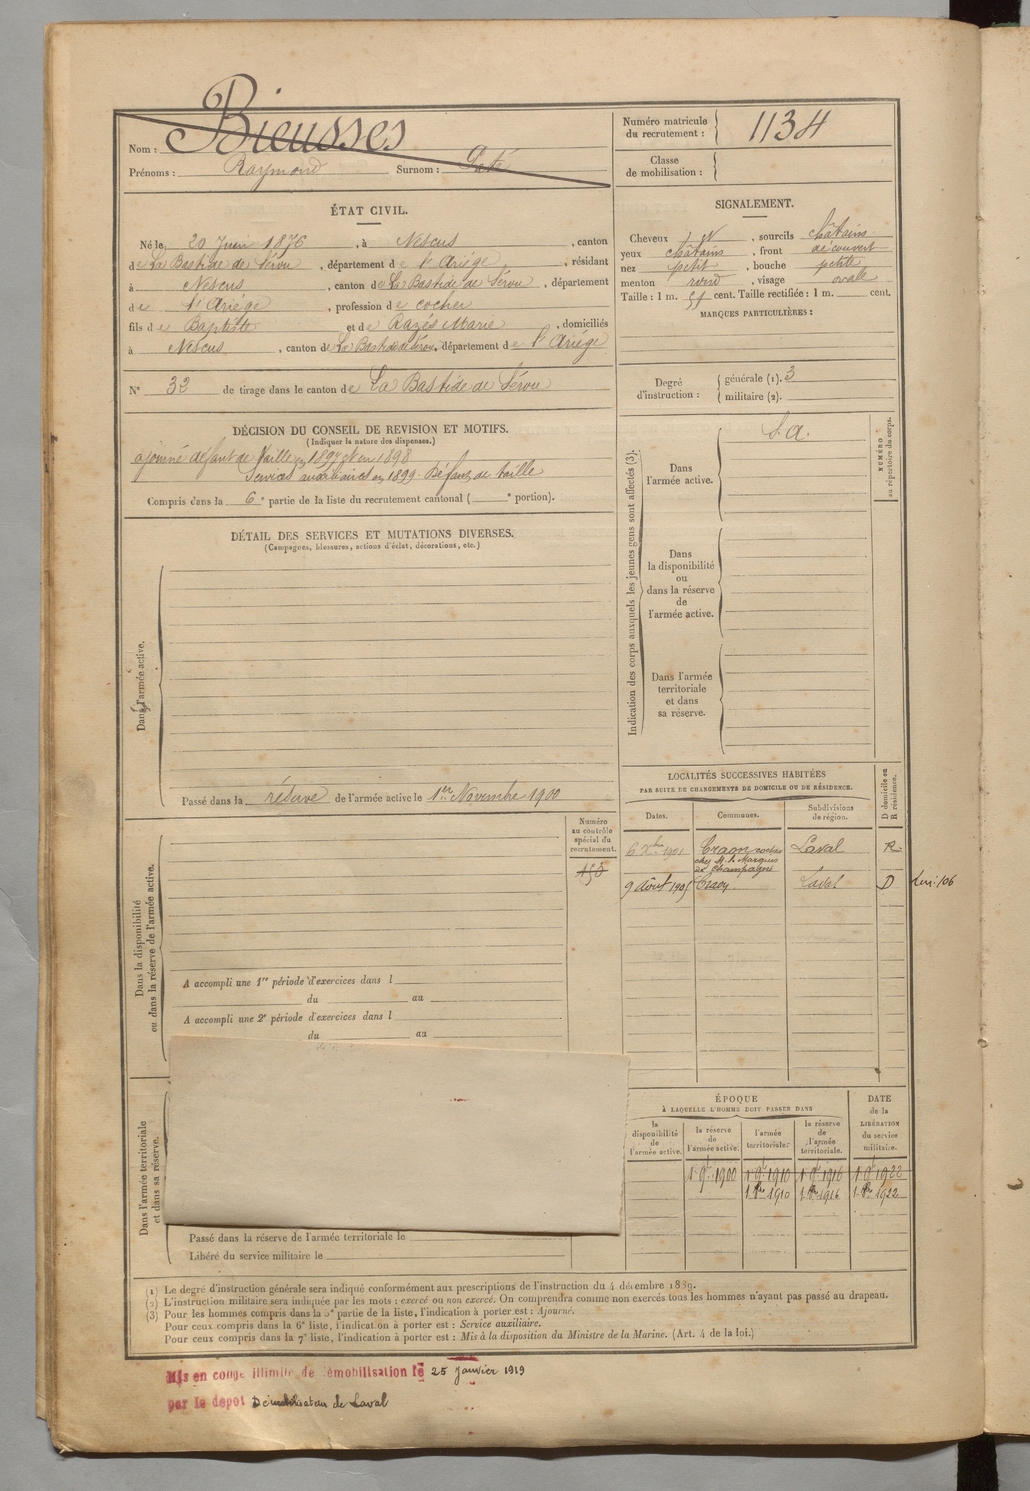 Nom : Bieusses
Prénoms : Raymond Surnom :
Numéro matricule du recrutement : 1134
Classe de mobilisation :
ÉTAT CIVIL.
Né le 20 Juin 1876, à Nescus, canton
de La Bastide de Sérou, département de l'Ariège, résidant
à Nescus, canton de La Bastide de Sérou, département
de l'Ariège, profession de cocher
fils de Baptiste et de Razés Marie, domiciliés
à Nescus, canton de La Bastide de Sérou, département de l'Ariège
N° 32 de tirage dans le canton de La Bastide de Sérou
SIGNALEMENT.
Cheveux , sourcils châtains
yeux châtains, front découvert
nez petit, bouche petite
menton rond, visage ovale
Taille : 1 m. 51 cent. Taille rectifiée : 1 m. cent.
MARQUES PARTICULIÈRES :
Degré d'instruction : générale (1). 3
militaire (2).
DÉCISION DU CONSEIL DE REVISION ET MOTIFS.
(Indiquer la nature des dispenses.)
ajourné défaut de taille en 1897 et en 1898
Services auxiliaires en 1899. Défaut de taille
Compris dans la 6e partie de la liste du recrutement cantonal ( e portion).
DÉTAIL DES SERVICES ET MUTATIONS DIVERSES.
(Campagnes, blessures, actions d'éclat, décorations, etc.)
Dans l'armée active.
Passé dans la réserve de l'armée active le 1er Novembre 1900
Indication des corps auxquels les jeunes gens sont affectés (3).
Dans l'armée active. S. a.
Dans la disponibilité ou dans la réserve de l'armée active.
Dans l'armée territoriale et dans sa réserve.
NUMÉRO au répertoire du corps.
Dans la disponibilité ou dans la réserve de l'armée active.
Numéro au contrôle spécial du recrutement.
A accompli une 1re période d'exercices dans l
du au
A accompli une 2e période d'exercices dans l
du au
LOCALITÉS SUCCESSIVES HABITÉES
PAR SUITE DE CHANGEMENTS DE DOMICILE OU DE RÉSIDENCE.
Dates. Communes. Subdivisions de région. D domicile ou R résidence.
6 Xbre 1901 Craon cocher chez M. le Marquis de Champagné Laval R
9 Août 1905 Craon Laval D
Dans l'armée territoriale et dans sa réserve.
Passé dans la réserve de l'armée territoriale le
Libéré du service militaire le
ÉPOQUE
À LAQUELLE L'HOMME DOIT PASSER DANS
la disponibilité de l'armée active. la réserve de l'armée active. l'armée territoriale. la réserve de l'armée territoriale. DATE de la LIBÉRATION du service militaire.
1 9bre 1900 1 9bre 1910 1 9bre 1916 1 9bre 1922
1 8bre 1910 1 8bre 1916 1 8bre 1922
(1) Le degré d'instruction générale sera indiqué conformément aux prescriptions de l'instruction du 4 décembre 1889.
(2) L'instruction militaire sera indiquée par les mots : exercé ou non exercé. On comprendra comme non exercés tous les hommes n'ayant pas passé au drapeau.
(3) Pour les hommes compris dans la 5e partie de la liste, l'indication à porter est : Ajourné.
Pour ceux compris dans la 6e liste, l'indication à porter est : Service auxiliaire.
Pour ceux compris dans la 7e liste, l'indication à porter est : Mis à la disposition du Ministre de la Marine. (Art. 4 de la loi.)
Mis en congé illimité de démobilisation le 25 janvier 1919
par le dépot Démobilisateur de Laval